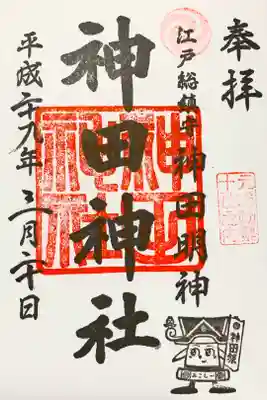 奉拝
江戸総鎮守神田明神
神田神社
平成二十九年三月二十日
神田神社
みこしー